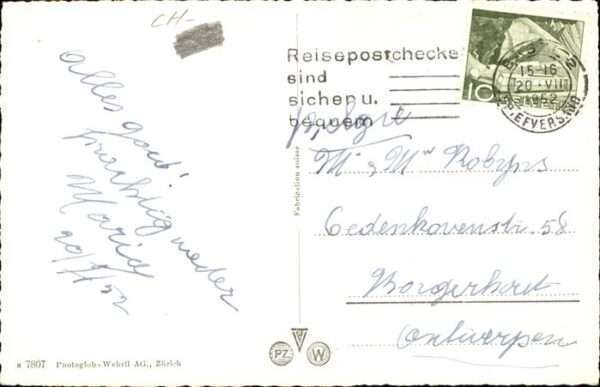 CH-
Alles goed!
prachtig weder
Maria
20/7/52
R 7807 Photoglob-Wehrli AG., Zürich
Fabrication suisse
PZ W
Reisepostchecks
sind
sicher u.
bequem
10
15-16
20. VII
1952
BRIEFVERSAND
Mr & Mw Robyns
Oedenkovenstr. 58
Borgerhout
Antwerpen